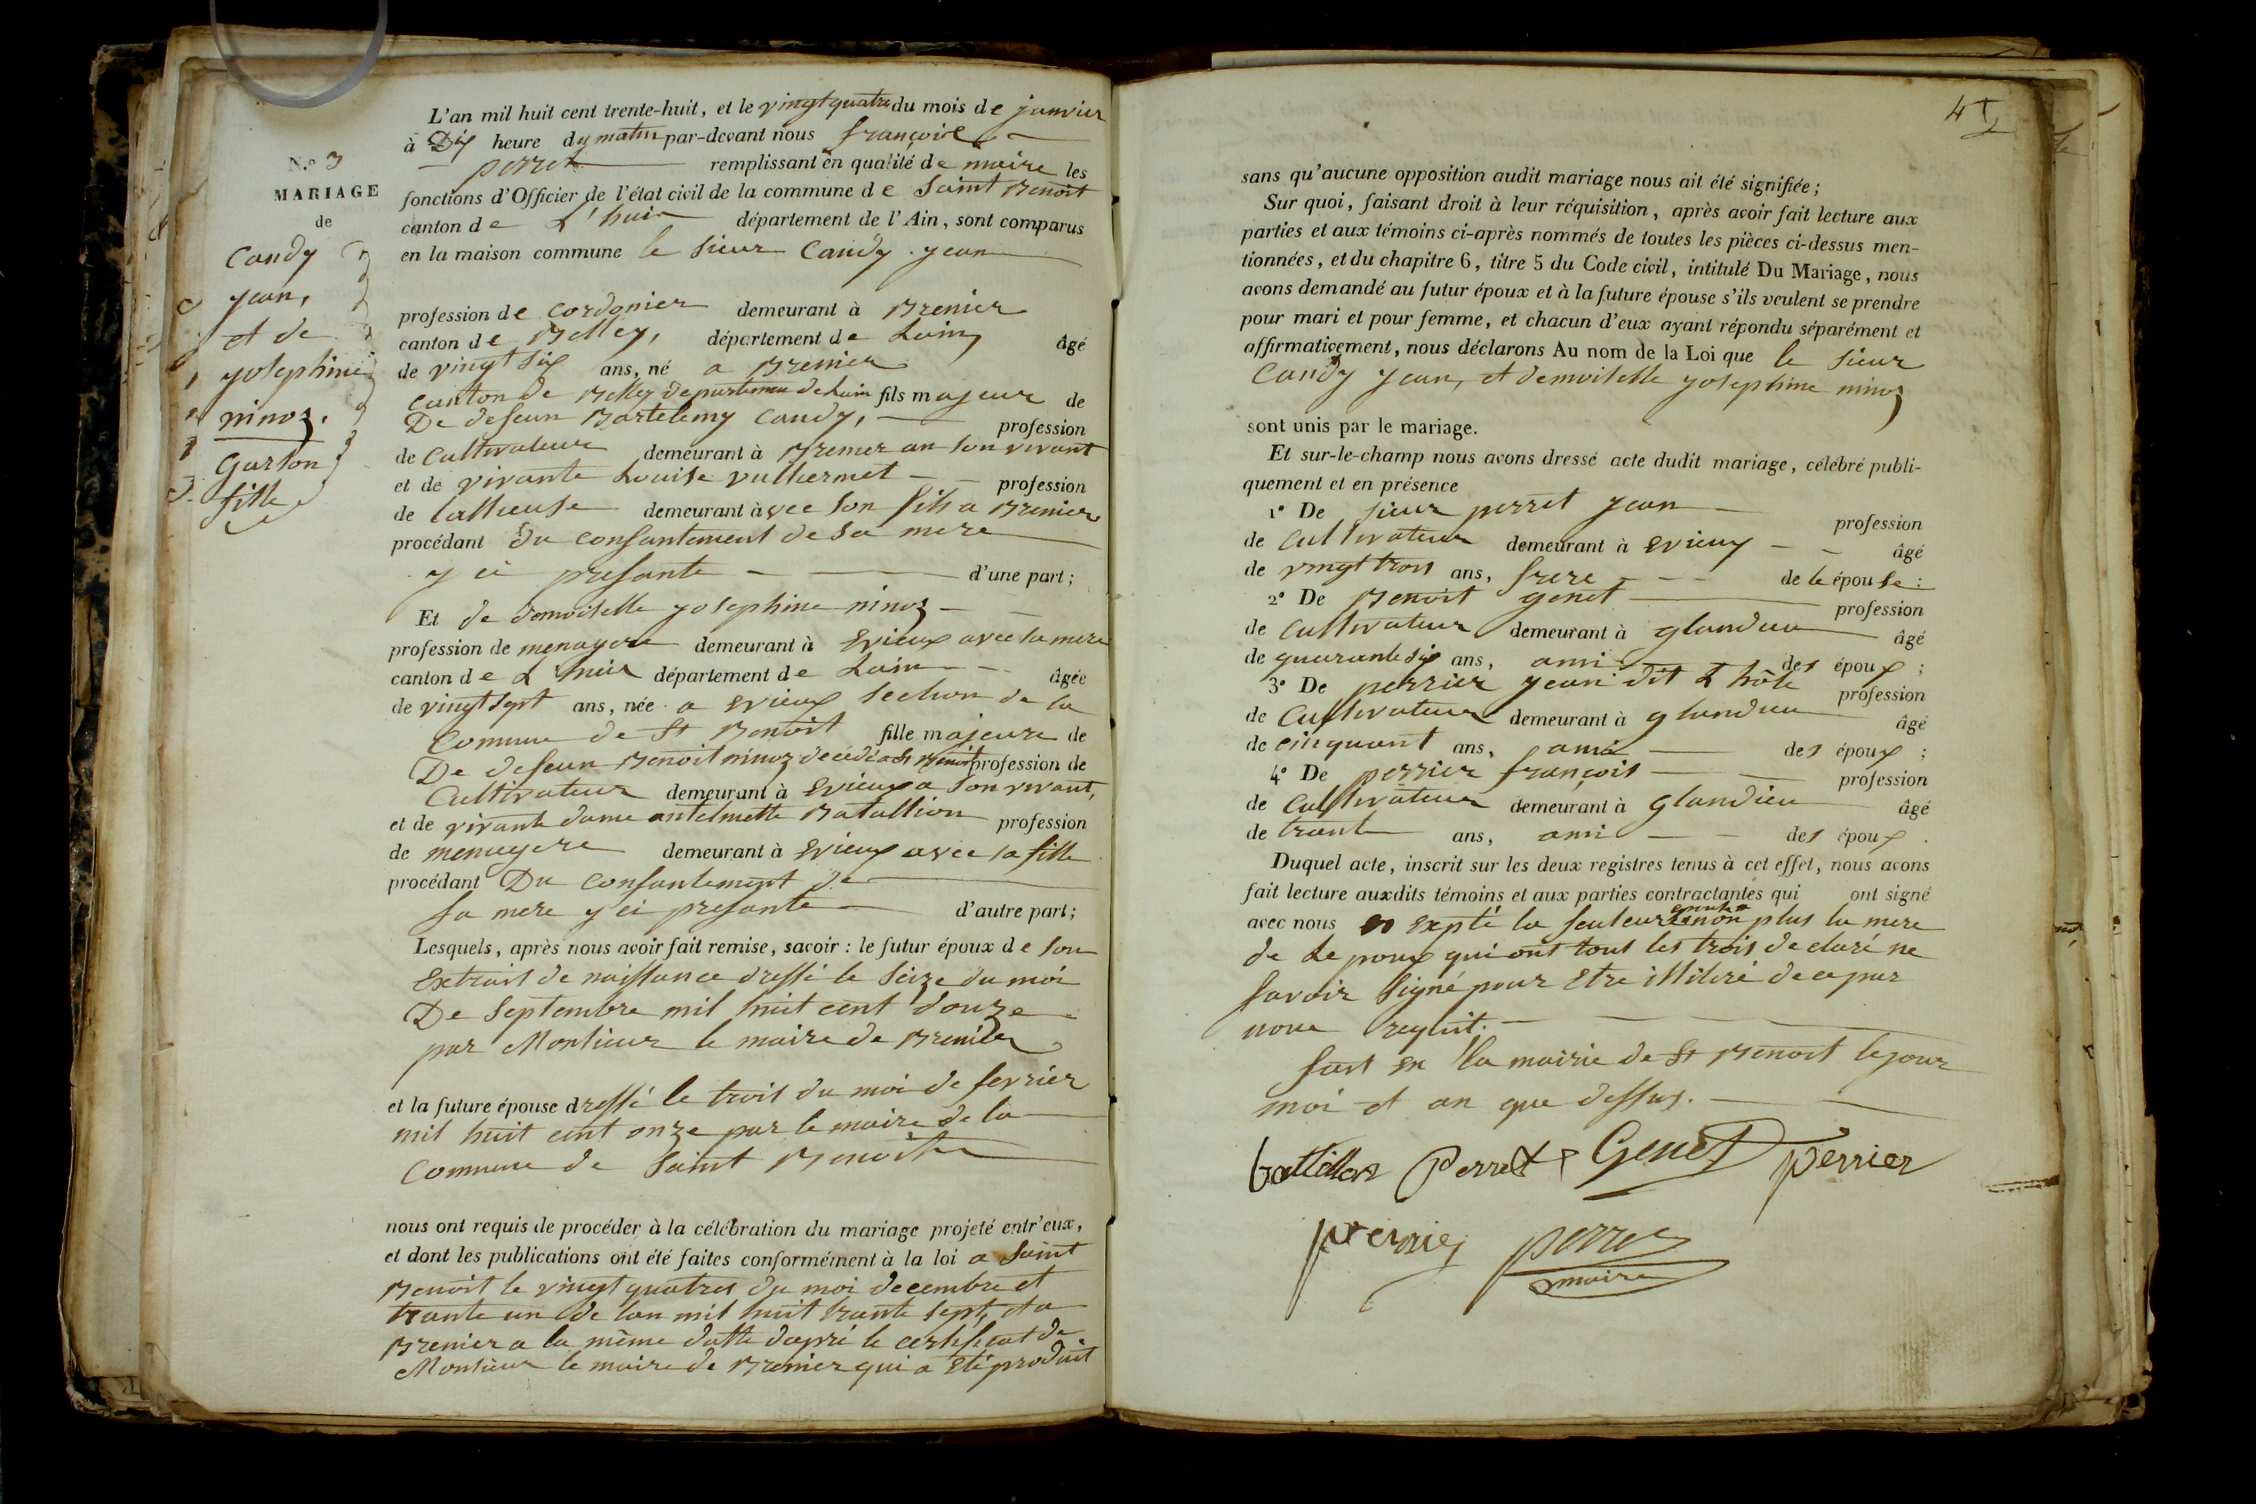 L'an mil huit cent trente-huit, et le vingt quatre du mois de janvier
à Dix heure du matin par-devant nous françois
perret remplissant en qualité de maire les
fonctions d'Officier de l'état civil de la commune de Saint Benoit
canton de L'huis département de l'Ain, sont comparus
en la maison commune le sieur Candy jean
N.o 3
MARIAGE
de
Candy
jean,
et de
josephine
ninoz.
Garson
fille
profession de cordonier demeurant à Brenier
canton de Belley, département de Lain âgé
de vingt six ans, né a Brenier
canton de Belley departemen de Lain fils majeur de
De defeun Bartelemy Candy, profession
de Cultivateur demeurant à Brenier an son vivant
et de vivante Louise vulliermet profession
de tallieuse demeurant àvec son fils a Brenier
procédant du consantement de sa mere
y ci presante d'une part;
Et de demoiselle josephine ninoz
profession de menagere demeurant à Evieux avec sa mere
canton de L'huis département de Lain âgée
de vingt sept ans, née a Evieux section de la
Commune de St Benoit fille majeure de
De defeun Benoit ninoz decédé a St Benoit profession de
Cultivateur demeurant à Evieux a son vivant,
et de vivante dame antelmette Batallion profession
de menagere demeurant à Evieux avec sa fille
procédant Du consantement de
sa mere y ci presante d'autre part;
Lesquels, après nous avoir fait remise, savoir: le futur époux de son
Extrait de naissance dressé le seize du moi
De Septembre mil huit cent douze
par Monsieur le maire de Brenier
et la future épouse dressé le trois du moi de fevrier
mil huit cent onze par le maire de la
commune de Saint Benoit
nous ont requis de procéder à la célébration du mariage projeté entr'eux,
et dont les publications ont été faites conformément à la loi a Saint
Benoit le vingt quatres du moi decembre et
trante un de lan mil huit trante sept, et a
Brenier a la même datte daprè le certificat de
Monsieur le maire de Brenier qui a eté produit
4
sans qu'aucune opposition audit mariage nous ait été signifiée;
Sur quoi, faisant droit à leur réquisition, après avoir fait lecture aux
parties et aux témoins ci-après nommés de toutes les pièces ci-dessus men-
tionnées, et du chapitre 6, titre 5 du Code civil, intitulé Du Mariage, nous
avons demandé au futur époux et à la future épouse s'ils veulent se prendre
pour mari et pour femme, et chacun d'eux ayant répondu séparément et
affirmativement, nous déclarons Au nom de la Loi que le sieur
Candy jean, et demoiselle josephine ninoz
sont unis par le mariage.
Et sur-le-champ nous avons dressé acte dudit mariage, célébré publi-
quement et en présence
1o De sieur perret jean profession
de cultivateur demeurant à Evieux âgé
de vingt trois ans, frere de le épouse:
2o De Benoit genet profession
de cultivateur demeurant à glandieu âgé
de quarante six ans, ami des époux;
3o De perrier jean dit L'hôte profession
de Cultivateur demeurant à glandieu âgé
de cinquant ans, ami des époux;
4o De perrier françois profession
de Cultivateur demeurant à Glandieu âgé
de trante ans, ami des époux.
Duquel acte, inscrit sur les deux registres tenus à cet effet, nous avons
fait lecture auxdits témoins et aux parties contractantes qui ont signé
avec nous Expté la époux non plus la mere
de Le poux qui ont tout les trois declaré ne
savoir signé pour Etre illiteré de ce par
nous requit.
fait en la mairie de St Benoit le jour
moi et an que dessus.
battillon Perret Genet Perrier
perrier perret
maire